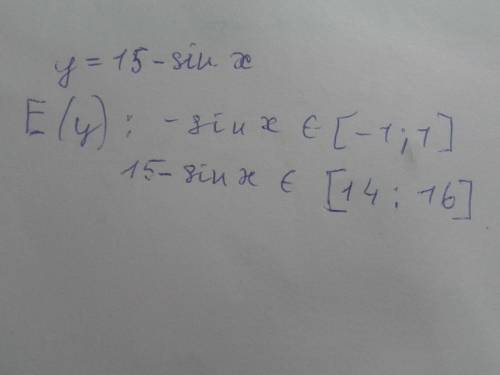 y = 15 - sin x
E(y) : - sin x ∈ [-1 ; 1]
15 - sin x ∈ [14 ; 16]